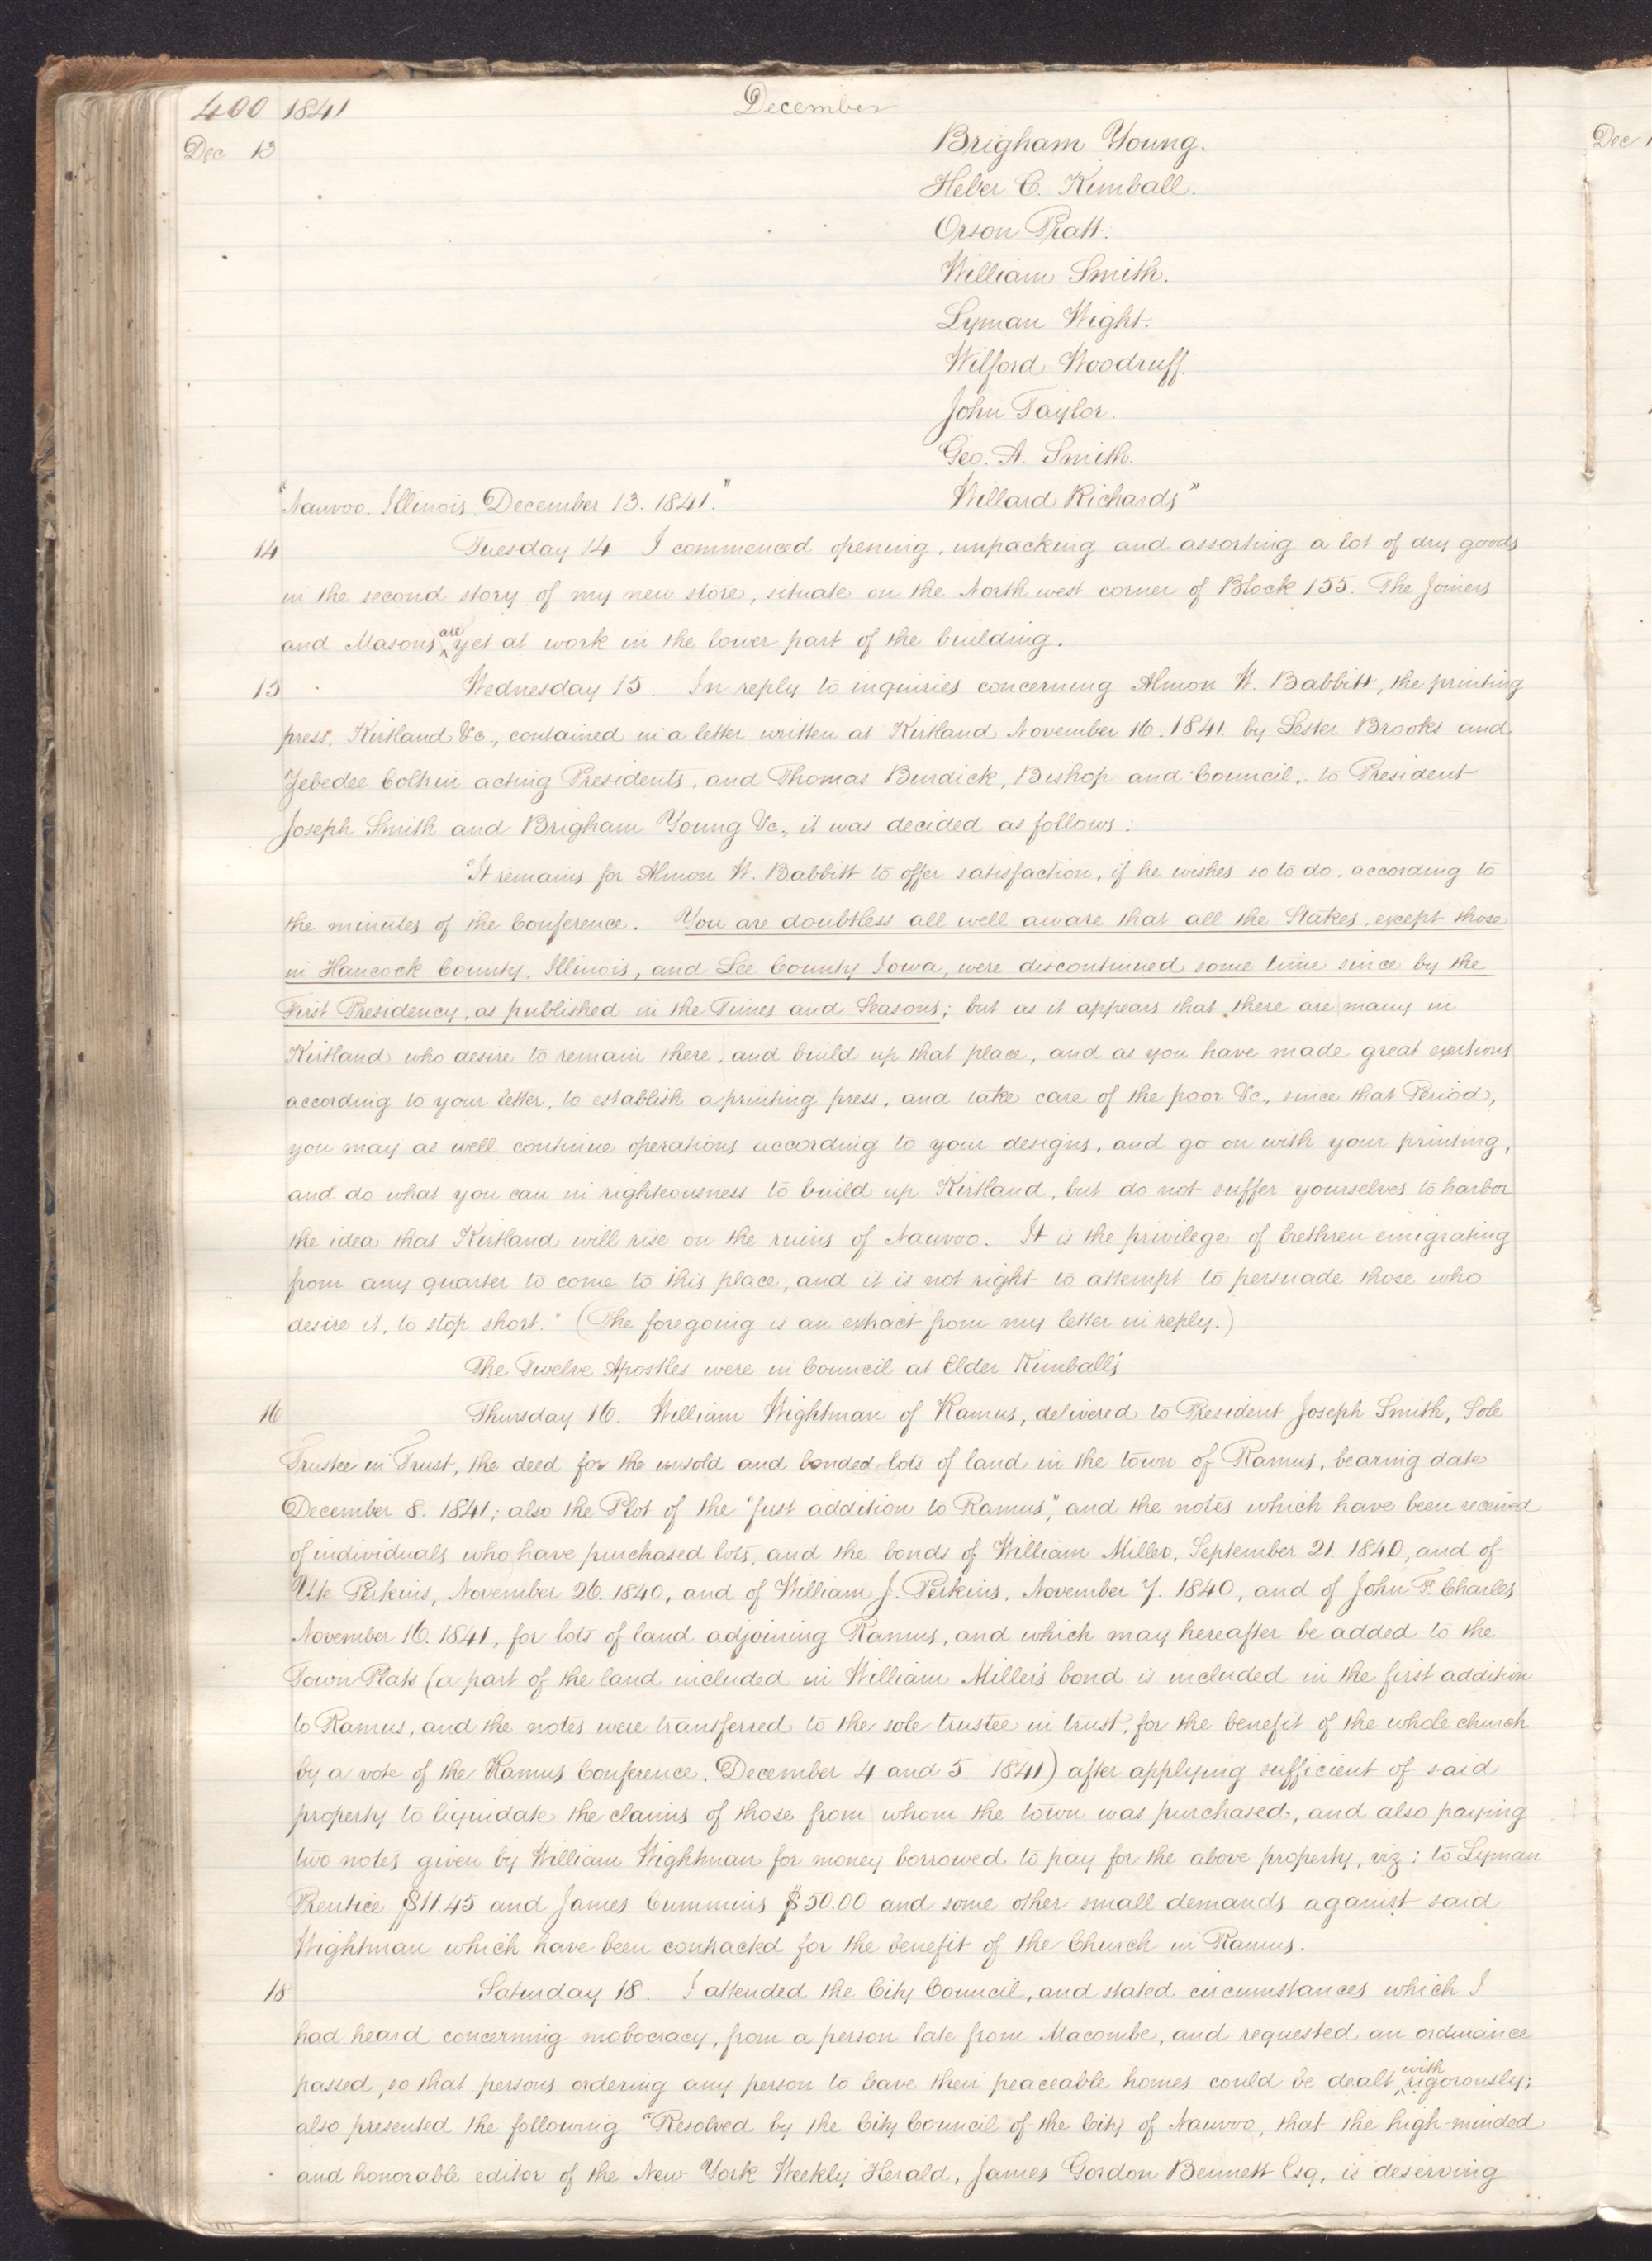 400 1841 December
Dec 13 Brigham Young.
Heber C. Kimball.
Orson Pratt.
William Smith.
Lyman Wight.
Wilford Woodruff.
John Taylor.
Geo. A. Smith.
"Nauvoo. Illinois. December 13. 1841." Willard Richards"
14 Tuesday 14 I commenced opening, unpacking and assorting a lot of dry goods
in the second story of my new store, situate on the North west corner of Block 155. The Joiners
and Masons are yet at work in the lower part of the building.
15 Wednesday 15. In reply to inquiries concerning Almon W. Babbitt, the printing
press, Kirtland &c., contained in a letter written at Kirtland November 16. 1841. by Lester Brooks and
Zebedee Coltrin acting Presidents, and Thomas Burdick, Bishop and Council, to President
Joseph Smith and Brigham Young &c., it was decided as follows:
"It remains for Almon W. Babbitt to offer satisfaction, if he wishes so to do, according to
the minutes of the Conference. You are doubtless all well aware that all the Stakes, except those
in Hancock County, Illinois, and Lee County Iowa, were discontinued some time since by the
First Presidency, as published in the Times and Seasons; but as it appears that there are many in
Kirtland who desire to remain there, and build up that place, and as you have made great exertions
according to your letter, to establish a printing press, and take care of the poor &c., since that Period,
you may as well continue operations according to your designs, and go on with your printing,
and do what you can in righteousness to build up Kirtland, but do not suffer yourselves to harbor
the idea that Kirtland will rise on the ruins of Nauvoo. It is the privilege of brethren emigrating
from any quarter to come to this place, and it is not right to attempt to persuade those who
desire it, to stop short." (The foregoing is an extract from my letter in reply.)
The Twelve Apostles were in Council at Elder Kimball's
16 Thursday 16. William Wightman of Ramus, delivered to President Joseph Smith, Sole
Trustee in Trust, the deed for the unsold and bonded lots of land in the town of Ramus, bearing date
December 8. 1841; also the Plot of the "first addition to Ramus," and the notes which have been received
of individuals who have purchased lots, and the bonds of William Miller, September 21. 1840, and of
Ute Perkins, November 26. 1840, and of William J. Perkins, November 7. 1840, and of John F. Charles
November 16. 1841, for lots of land adjoining Ramus, and which may hereafter be added to the
Town Plats (a part of the land included in William Miller's bond is included in the first addition
to Ramus, and the notes were transferred to the sole trustee in trust, for the benefit of the whole church
by a vote of the Ramus Conference. December 4 and 5. 1841) after applying sufficient of said
property to liquidate the claims of those from whom the town was purchased, and also paying
two notes given by William Wightman for money borrowed to pay for the above property, viz: to Lyman
Prentice $11.45 and James Cummins $50.00 and some other small demands against said
Wightman which have been contracted for the benefit of the Church in Ramus.
18 Saturday 18. I attended the City Council, and stated circumstances which I
had heard concerning mobocracy, from a person late from Macombe, and requested an ordinance
passed, so that persons ordering any person to leave their peaceable homes could be dealt with rigorously;
also presented the following "Resolved by the City Council of the City of Nauvoo, that the high-minded
and honorable editor of the New York Weekly Herald, James Gordon Bennett Esq, is deserving
Dec 1